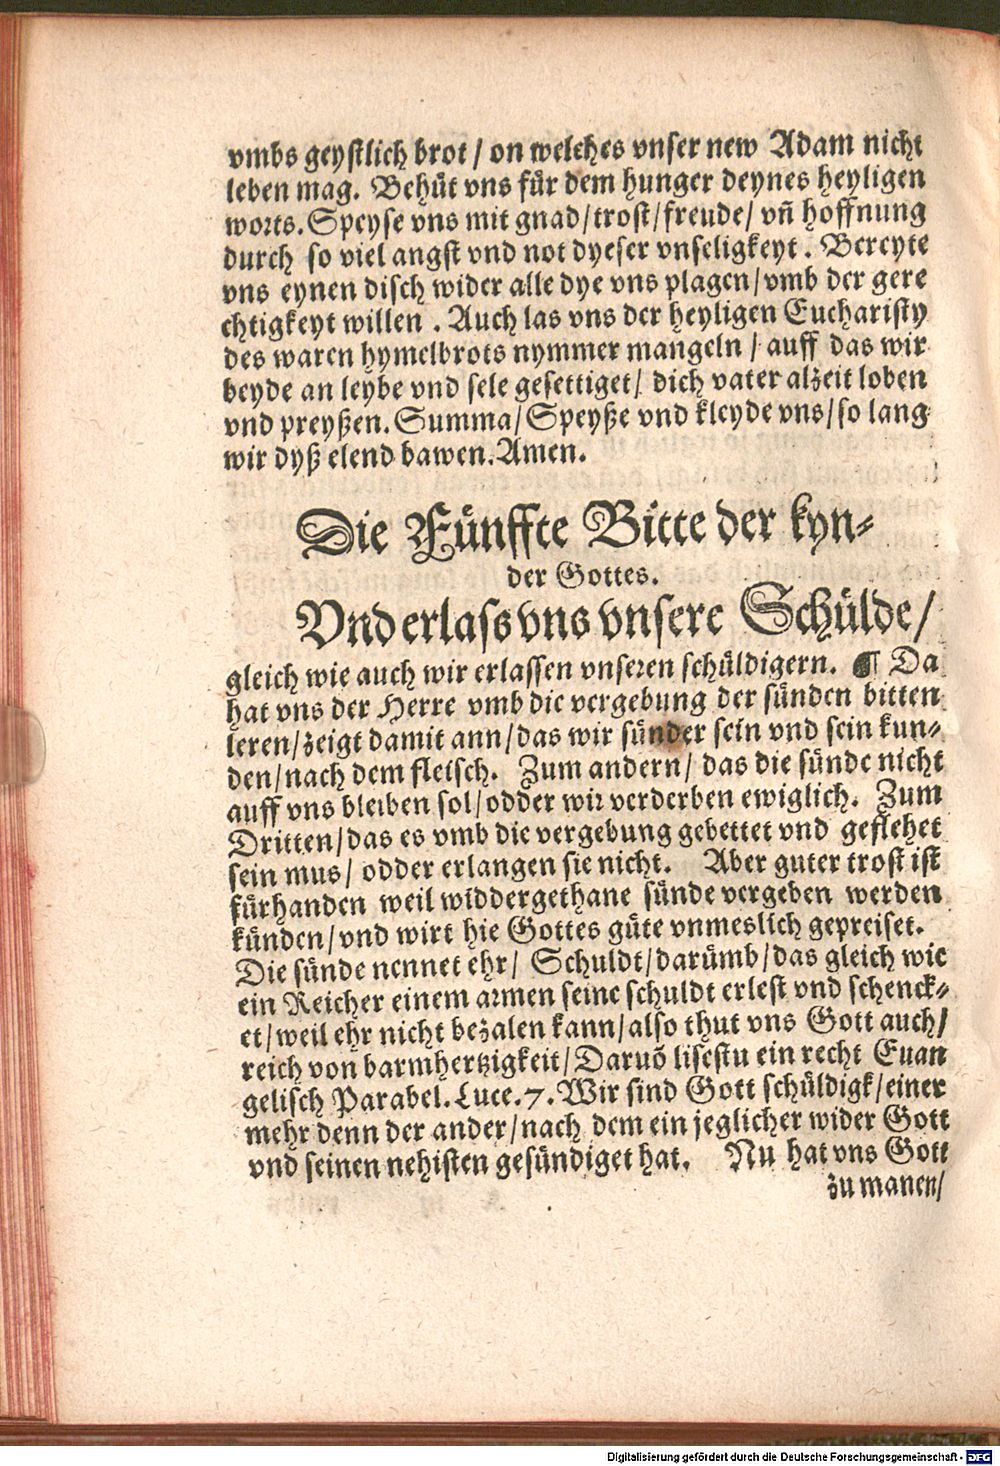 vmbs geystlich brot / on welches vnser new Adam nicht
leben mag. Behüt vns für dem hunger deynes heyligen
worts. Speyse vns mit gnad / trost / freude / vñ hoffnung
durch so viel angst vnd not dyeser vnseligkeyt. Bereyte
vns eynen disch wider alle dye vns plagen / vmb der gere
chtigkeyt willen. Auch las vns der heyligen Eucharisty
des waren hymelbrots nymmer mangeln / auff das wir
beyde an leybe vnd sele gesettiget / dich vater alzeit loben
vnd preyßen. Summa / Speyße vnd kleyde vns / so lang
wir dyß elend bawen. Amen.
Die Fünffte Bitte der kyn⸗
der Gottes.
Vnd erlass vns vnsere Schülde /
gleich wie auch wir erlassen vnseren schüldigern. ¶ Da
hat vns der Herre vmb die vergebung der sünden bitten
leren / zeigt damit ann / das wir sünder sein vnd sein kun⸗
den / nach dem fleisch. Zum andern / das die sünde nicht
auff vns bleiben sol / odder wir verderben ewiglich. Zum
Dritten / das es vmb die vergebung gebettet vnd geflehet
sein mus / odder erlangen sie nicht. Aber guter trost ist
fürhanden weil widdergethane sünde vergeben werden
künden / vnd wirt hie Gottes güte vnmeslich gepreiset.
Die sünde nennet ehr / Schuldt / darümb / das gleich wie
ein Reicher einem armen seine schuldt erlest vnd schenck⸗
et / weil ehr nicht bezalen kann / also thut vns Gott auch /
reich von barmhertzigkeit / Daruõ lisestu ein recht Euan
gelisch Parabel. Luce. 7. Wir sind Gott schüldigk / einer
mehr denn der ander / nach dem ein jeglicher wider Gott
vnd seinen nehisten gesündiget hat. Nu hat vns Gott
zu manen /
Digitalisierung gefördert durch die Deutsche Forschungsgemeinschaft - DFG